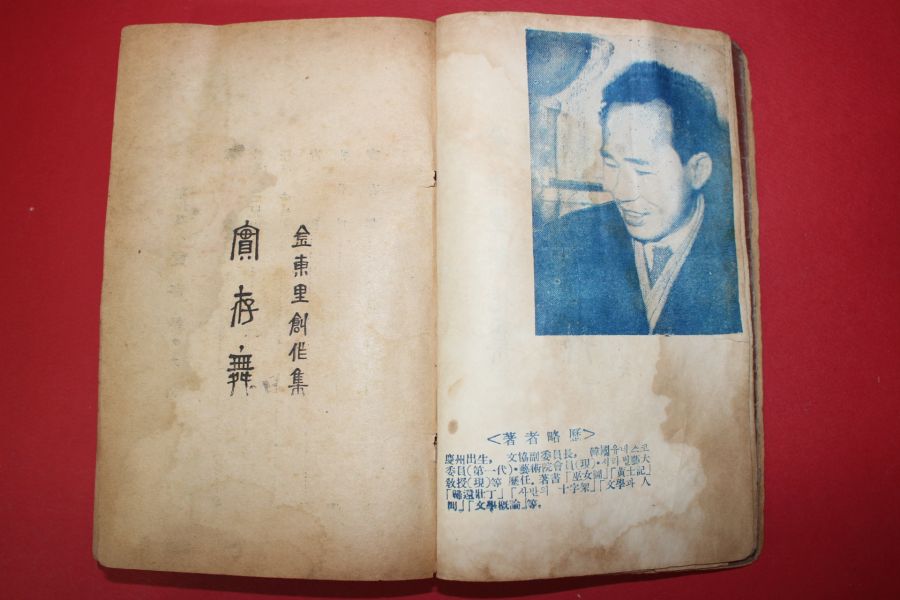 金東里創作集
實存舞
<著者略歷>
慶州出生, 文協副委員長, 韓國유네스코
委員(第一代)·藝術院會員(現)·서라벌藝大
敎授(現)等 歷任. 著書「巫女圖」「黃土記」
「歸還壯丁」「사반의 十字架」「文學과 人
間」「文學槪論」等.